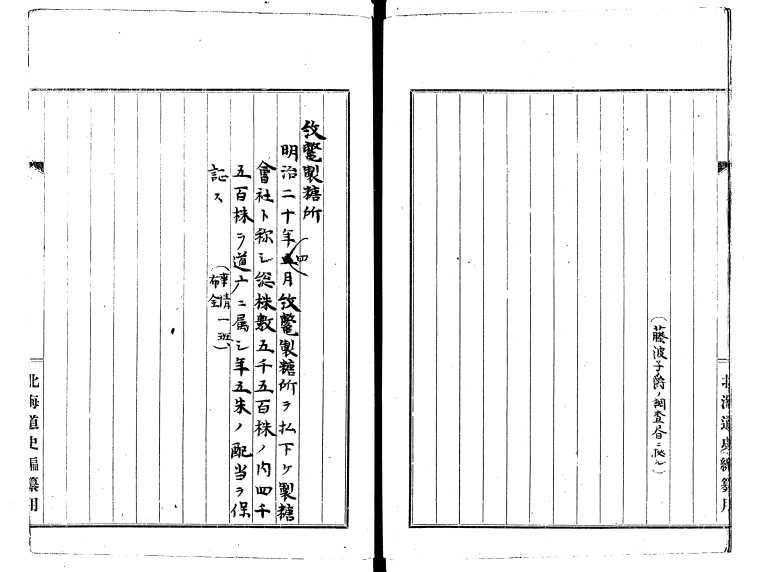 (藤波子爵ノ調査書ニ依ル)
北海道史編纂用
紋鼈製糖所
明治二十年五四月紋鼈製糖所ヲ払下ケ製糖
會社ト称シ総株數五千五百株ノ内四千
五百株ヲ道庁ニ属シ年五朱ノ配当ヲ保
証ス
(事情一班、
布令)
北海道史編纂用